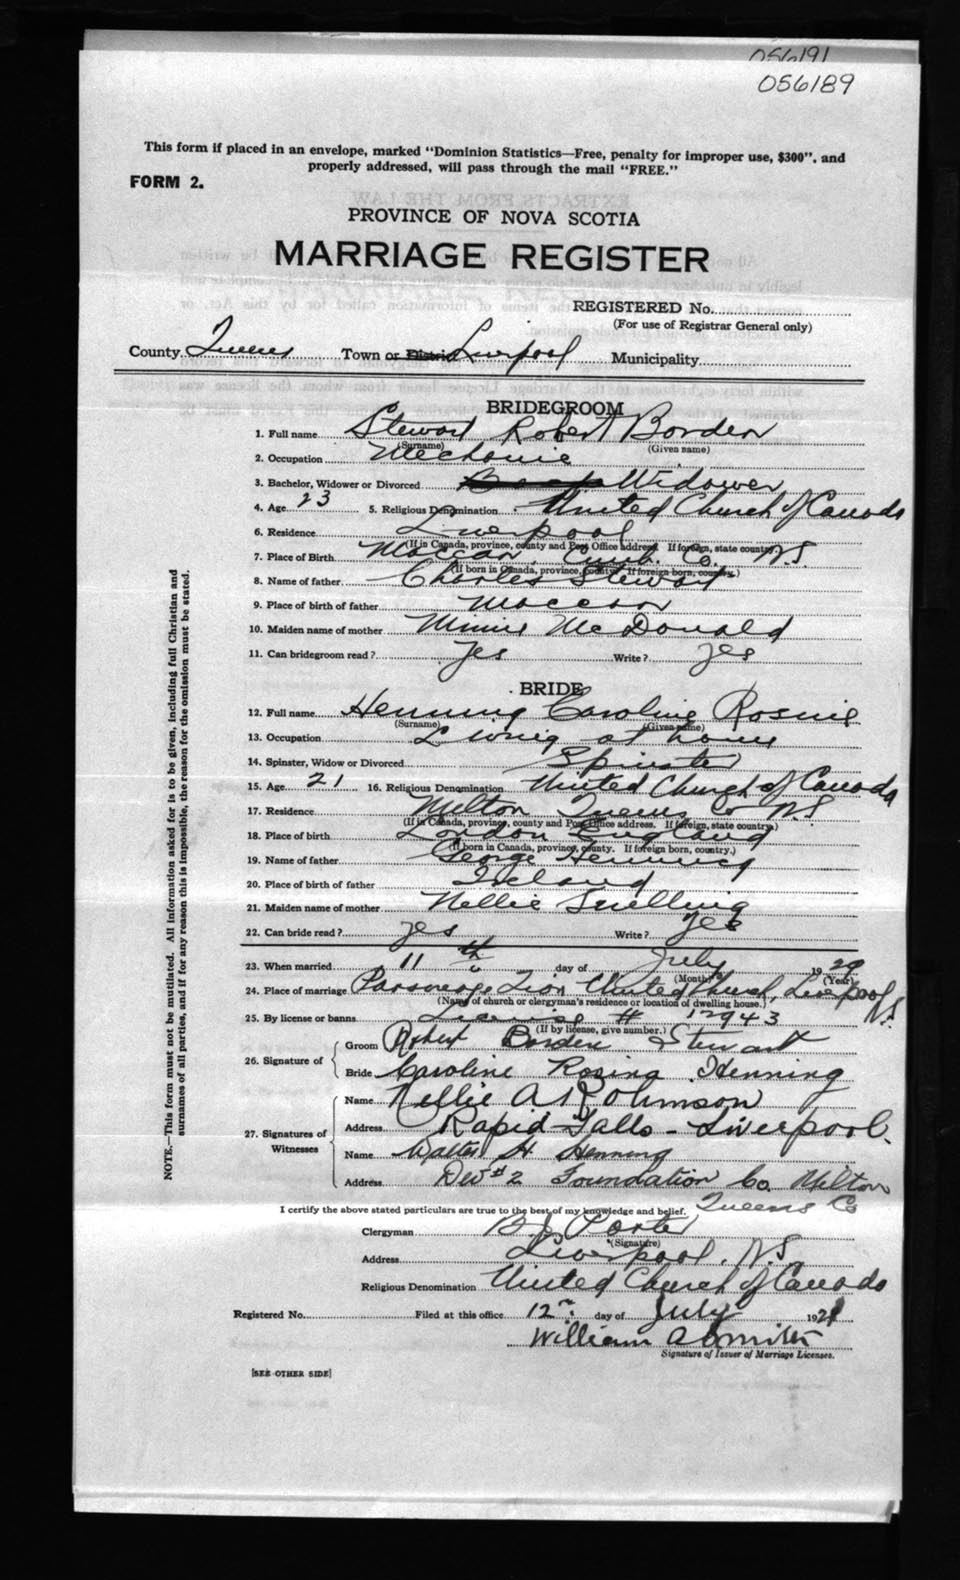 056191
056189
This form if placed in an envelope, marked "Dominion Statistics—Free, penalty for improper use, $300", and
properly addressed, will pass through the mail "FREE."
FORM 2.
PROVINCE OF NOVA SCOTIA
MARRIAGE REGISTER
REGISTERED No.
(For use of Registrar General only)
County Queens Town or District Liverpool Municipality
BRIDEGROOM
1. Full name Stewart Robert Borden
(Surname) (Given name)
2. Occupation Mechanic
3. Bachelor, Widower or Divorced Widower
4. Age 23 5. Religious Denomination United Church of Canada
6. Residence Liverpool
(If in Canada, province, county and Post Office address. If foreign, state country.)
7. Place of Birth Maccan, Cumb. Co. N.S.
(If born in Canada, province, county. If foreign born, country.)
8. Name of father Charles Stewart
9. Place of birth of father Maccan
10. Maiden name of mother Minnie McDonald
11. Can bridegroom read? Yes Write? Yes
BRIDE
12. Full name Henning Caroline Rosnie
(Surname) (Given name)
13. Occupation Living at home
14. Spinster, Widow or Divorced Spinster
15. Age 21 16. Religious Denomination United Church of Canada
17. Residence Milton Queens Co N.S.
(If in Canada, province, county and Post Office address. If foreign, state country.)
18. Place of birth London England
(If born in Canada, province, county. If foreign born, country.)
19. Name of father George Henning
20. Place of birth of father Ireland
21. Maiden name of mother Nellie Snelling
22. Can bride read? Yes Write? Yes
23. When married 11th day of July 1929
(Month) (Year)
24. Place of marriage Parsonage Zion United Church, Liverpool N.S.
(Name of church or clergyman's residence or location of dwelling house.)
25. By license or banns License # 12943
(If by license, give number.)
26. Signature of
Groom Robert Borden Stewart
Bride Caroline Rosina Henning
27. Signatures of Witnesses
Name Nellie A Rohmson
Address Rapid Falls - Liverpool.
Name Walter H. Henning
Address Dev #2 Foundation Co. Milton
Queens Co
I certify the above stated particulars are true to the best of my knowledge and belief.
Clergyman B J Porter
(Signature)
Address Liverpool, N.S.
Religious Denomination United Church of Canada
Registered No. Filed at this office 12th day of July 192
William
Signature of Issuer of Marriage Licenses.
[SEE OTHER SIDE]
NOTE.—This form must not be mutilated. All information asked for is to be given, including full Christian and
surnames of all parties, and if for any reason this is impossible, the reason for the omission must be stated.